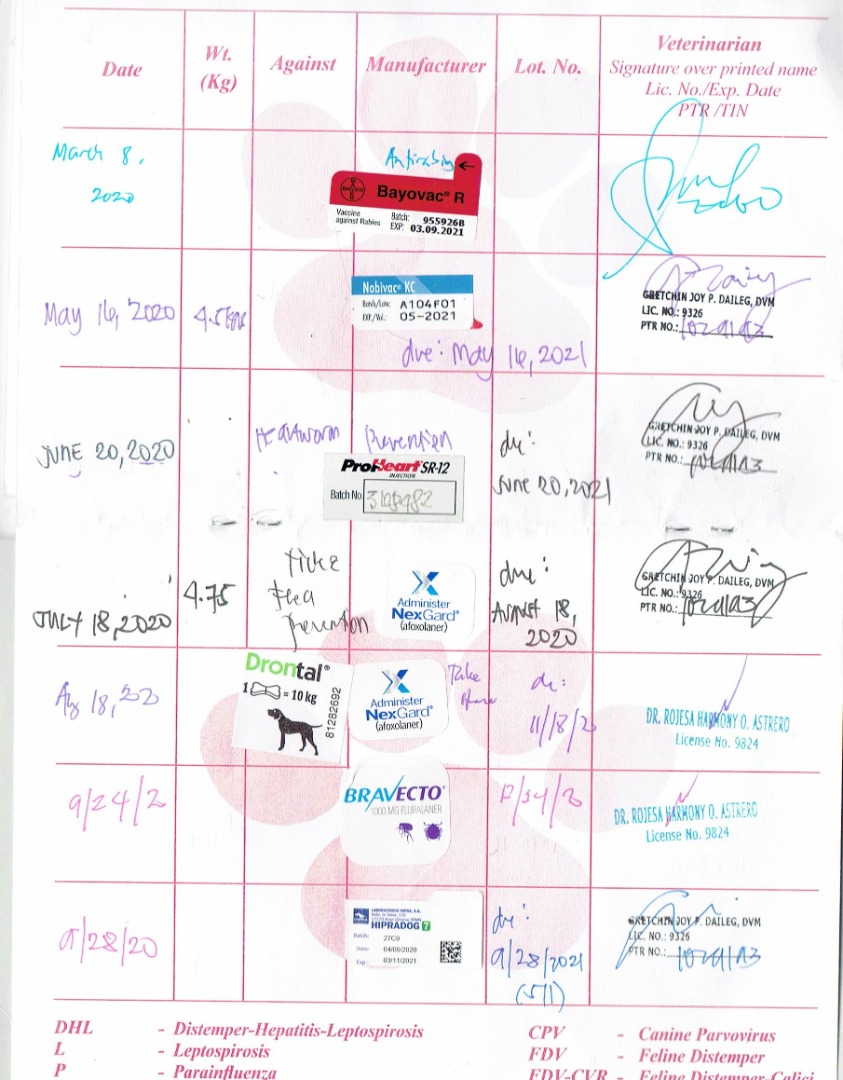 Date
Wt.
(Kg)
Against
Manufacturer
Lot. No.
Veterinarian
Signature over printed name
Lic. No./Exp. Date
PTR /TIN
March 8,
2020
Antirabies
←
BAYER
Bayovac® R
Vaccine
against Rabies
Batch: 955926B
EXP: 03.09.2021
May 16, 2020
4.5kgs
Nobivac® KC
Batch/Lote: A104F01
EXP./Val.: 05-2021
due: May 16, 2021
GRETCHIN JOY P. DAILEG, DVM
LIC. NO.: 9326
PTR NO.:
JUNE 20, 2020
Heartworm Prevention
ProHeart® SR-12
INJECTION
Batch No.
due:
June 20, 2021
GRETCHIN JOY P. DAILEG, DVM
LIC. NO.: 9326
PTR NO.:
JULY 18, 2020
4.75
Ticks
Flea
Prevention
Administer
NexGard®
(afoxolaner)
due:
August 18,
2020
GRETCHIN JOY P. DAILEG, DVM
LIC. NO.: 9326
PTR NO.:
Aug 18, 20
Drontal®
1 = 10 kg
81282692
Administer
NexGard®
(afoxolaner)
Take
Home
du:
11/18/2
DR. ROJESA HARMONY O. ASTRERO
License No. 9824
9/24/2
BRAVECTO®
1000 MG FLURALANER
DR. ROJESA HARMONY O. ASTRERO
License No. 9824
9/28/20
LABORATORIOS HIPRA, S.A.
HIPRADOG 7
Batch: 27C9
Date: 04/05/2020
Exp.: 03/11/2021
due:
9/28/2021
(5/1)
GRETCHIN JOY P. DAILEG, DVM
LIC. NO.: 9326
PTR NO.:
DHL - Distemper-Hepatitis-Leptospirosis
L - Leptospirosis
P - Parainfluenza
CPV - Canine Parvovirus
FDV - Feline Distemper
FDV-CVR - Feline Distemper-Calici